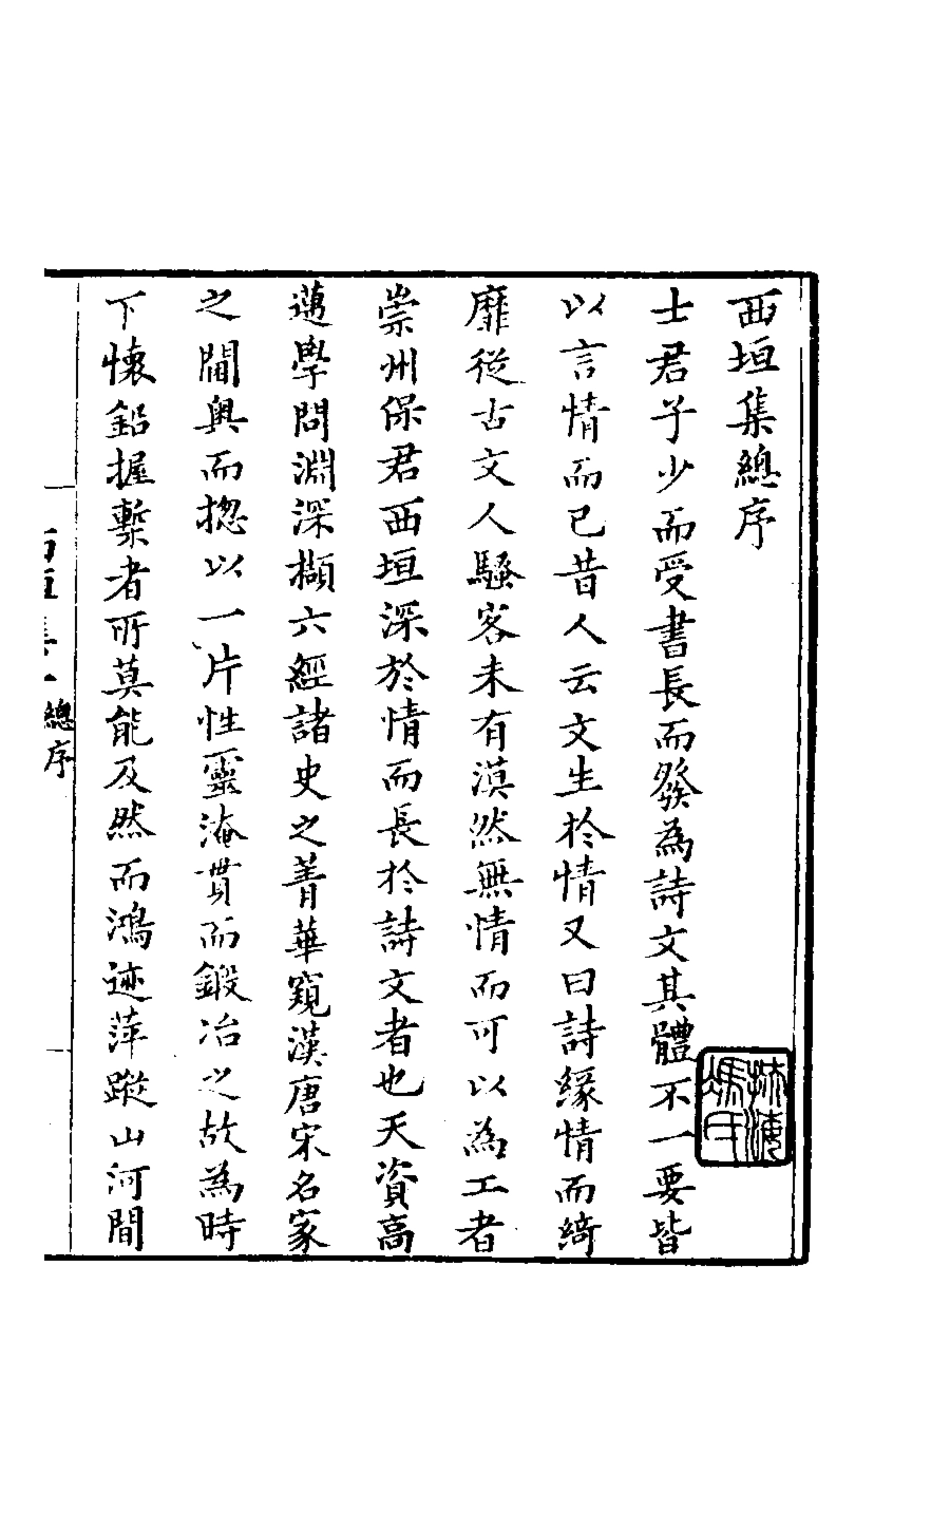 西垣集總序
士君子少而受書長而發為詩文其體不一要皆
以言情而已昔人云文生於情又曰詩緣情而綺
靡從古文人騷客未有漠然無情而可以為工者
崇州保君西垣深於情而長於詩文者也天資高
邁學問淵深擷六經諸史之菁華窺漢唐宋名家
之閫奧而揔以一片性靈淹貫而鍛冶之故為時
下懷鉛握槧者所莫能及然而鴻迹萍蹤山河間
西垣集
總序